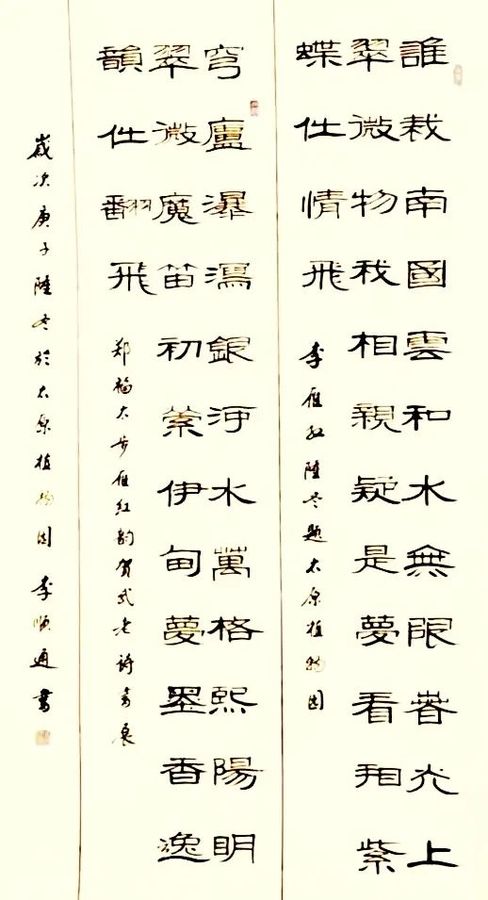 誰裁南國雲和水無限春光上
翠微物我相親疑是夢看相紫
蝶任情飛
李雁红隆冬题太原植物园
穹廬瀑瀉銀河水萬格熙陽明
翠微魔笛初縈伊甸夢墨香逸
韻任翻飛
郑福太步雁红韵贺武老诗書展
歲次庚子隆冬於太原植物园李順通書